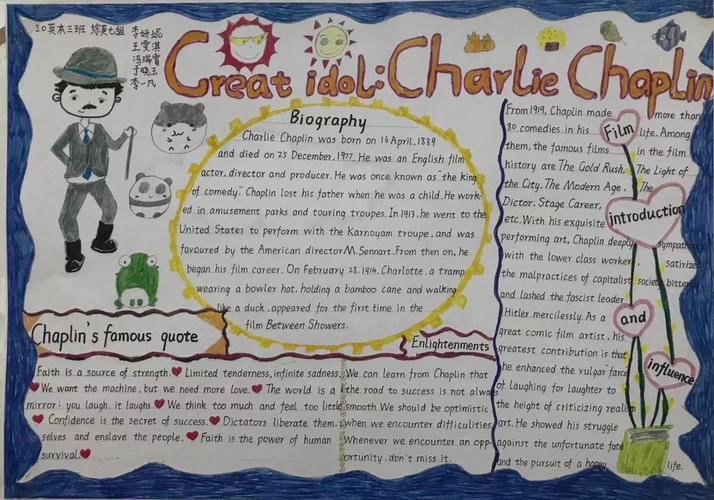 20英本三班 综英七组 李妍妮
王雯淇
冯瑞霄
于晓玉
李一凡
Great idol: Charlie Chaplin
Biography
Charlie Chaplin was born on 16 April, 1889
and died on 25 December, 1977. He was an English film
actor, director and producer. He was once known as "the king
of comedy." Chaplin lost his father when he was a child. He work-
ed in amusement parks and touring troupes. In 1913, he went to the
United States to perform with the Karnoyam troupe, and was
favoured by the American director M. Sennart. From then on, he
began his film career. On February 28, 1914, Charlotte, a tramp
wearing a bowler hat, holding a bamboo cane and walking
like a duck, appeared for the first time in the
film Between Showers.
Film
introduction
and
influence
From 1919, Chaplin made more than
80 comedies in his life. Among
them, the famous films in the film
history are The Gold Rush, The Light of
the City, The Modern Age, The
Dictor, Stage Career,
etc. With his exquisite
performing art, Chaplin deeply sympathi
with the lower class workers, satirized
the malpractices of capitalist society bitterly
and lashed the fascist leader
Hitler mercilessly. As a
great comic film artist, his
greatest contribution is that
he enhanced the vulgar farce
of laughing for laughter to
the height of criticizing realism
art. He showed his struggle
against the unfortunate fate
and the pursuit of a happy life.
Chaplin's famous quote
Faith is a source of strength. Limited tenderness, infinite sadness.
We want the machine, but we need more love. The world is a
mirror: you laugh, it laughs. We think too much and feel too little.
Confidence is the secret of success. Dictators liberate them-
selves and enslave the people. Faith is the power of human
survival.
Enlightenments
We can learn from Chaplin that
the road to success is not always
smooth. We should be optimistic
when we encounter difficulties.
Whenever we encounter an opp-
ortunity, don't miss it.